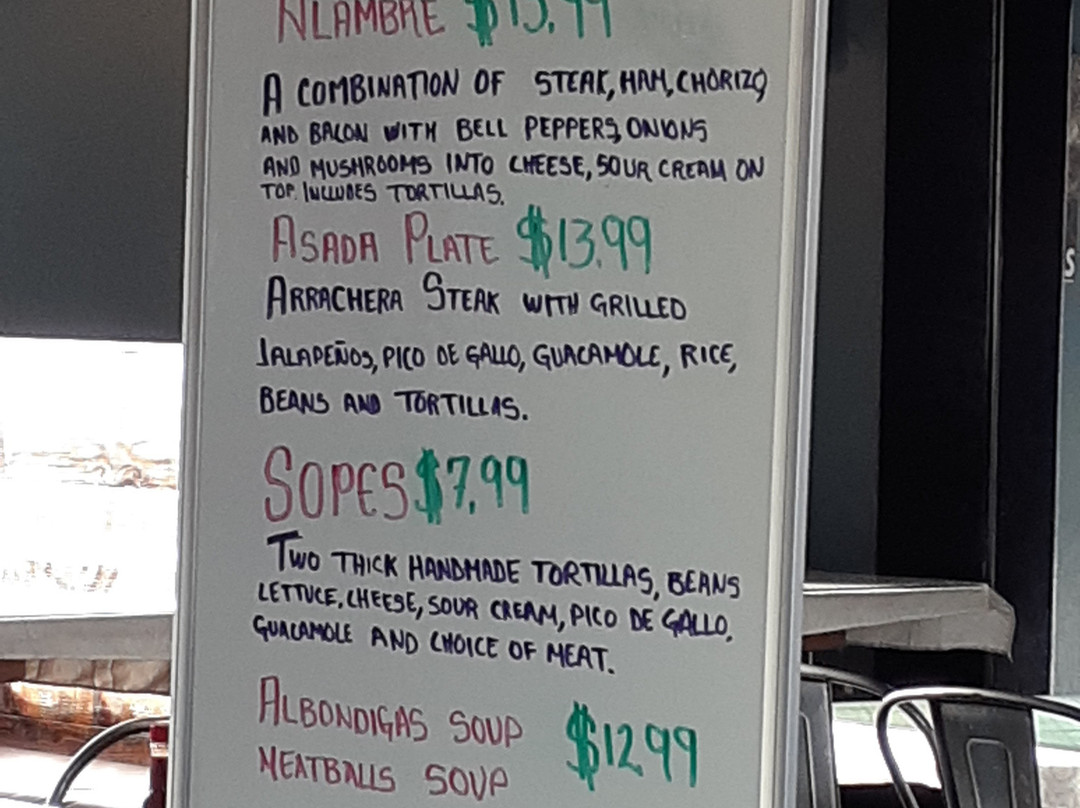 ALAMBRE $13.99
A COMBINATION OF STEAK, HAM, CHORIZO
AND BACON WITH BELL PEPPERS, ONIONS
AND MUSHROOMS INTO CHEESE, SOUR CREAM ON
TOP. INCLUDES TORTILLAS.
ASADA PLATE $13.99
ARRACHERA STEAK WITH GRILLED
JALAPEÑOS, PICO DE GALLO, GUACAMOLE, RICE,
BEANS AND TORTILLAS.
SOPES $7.99
TWO THICK HANDMADE TORTILLAS, BEANS
LETTUCE, CHEESE, SOUR CREAM, PICO DE GALLO,
GUACAMOLE AND CHOICE OF MEAT.
ALBONDIGAS SOUP $12.99
MEATBALLS SOUP